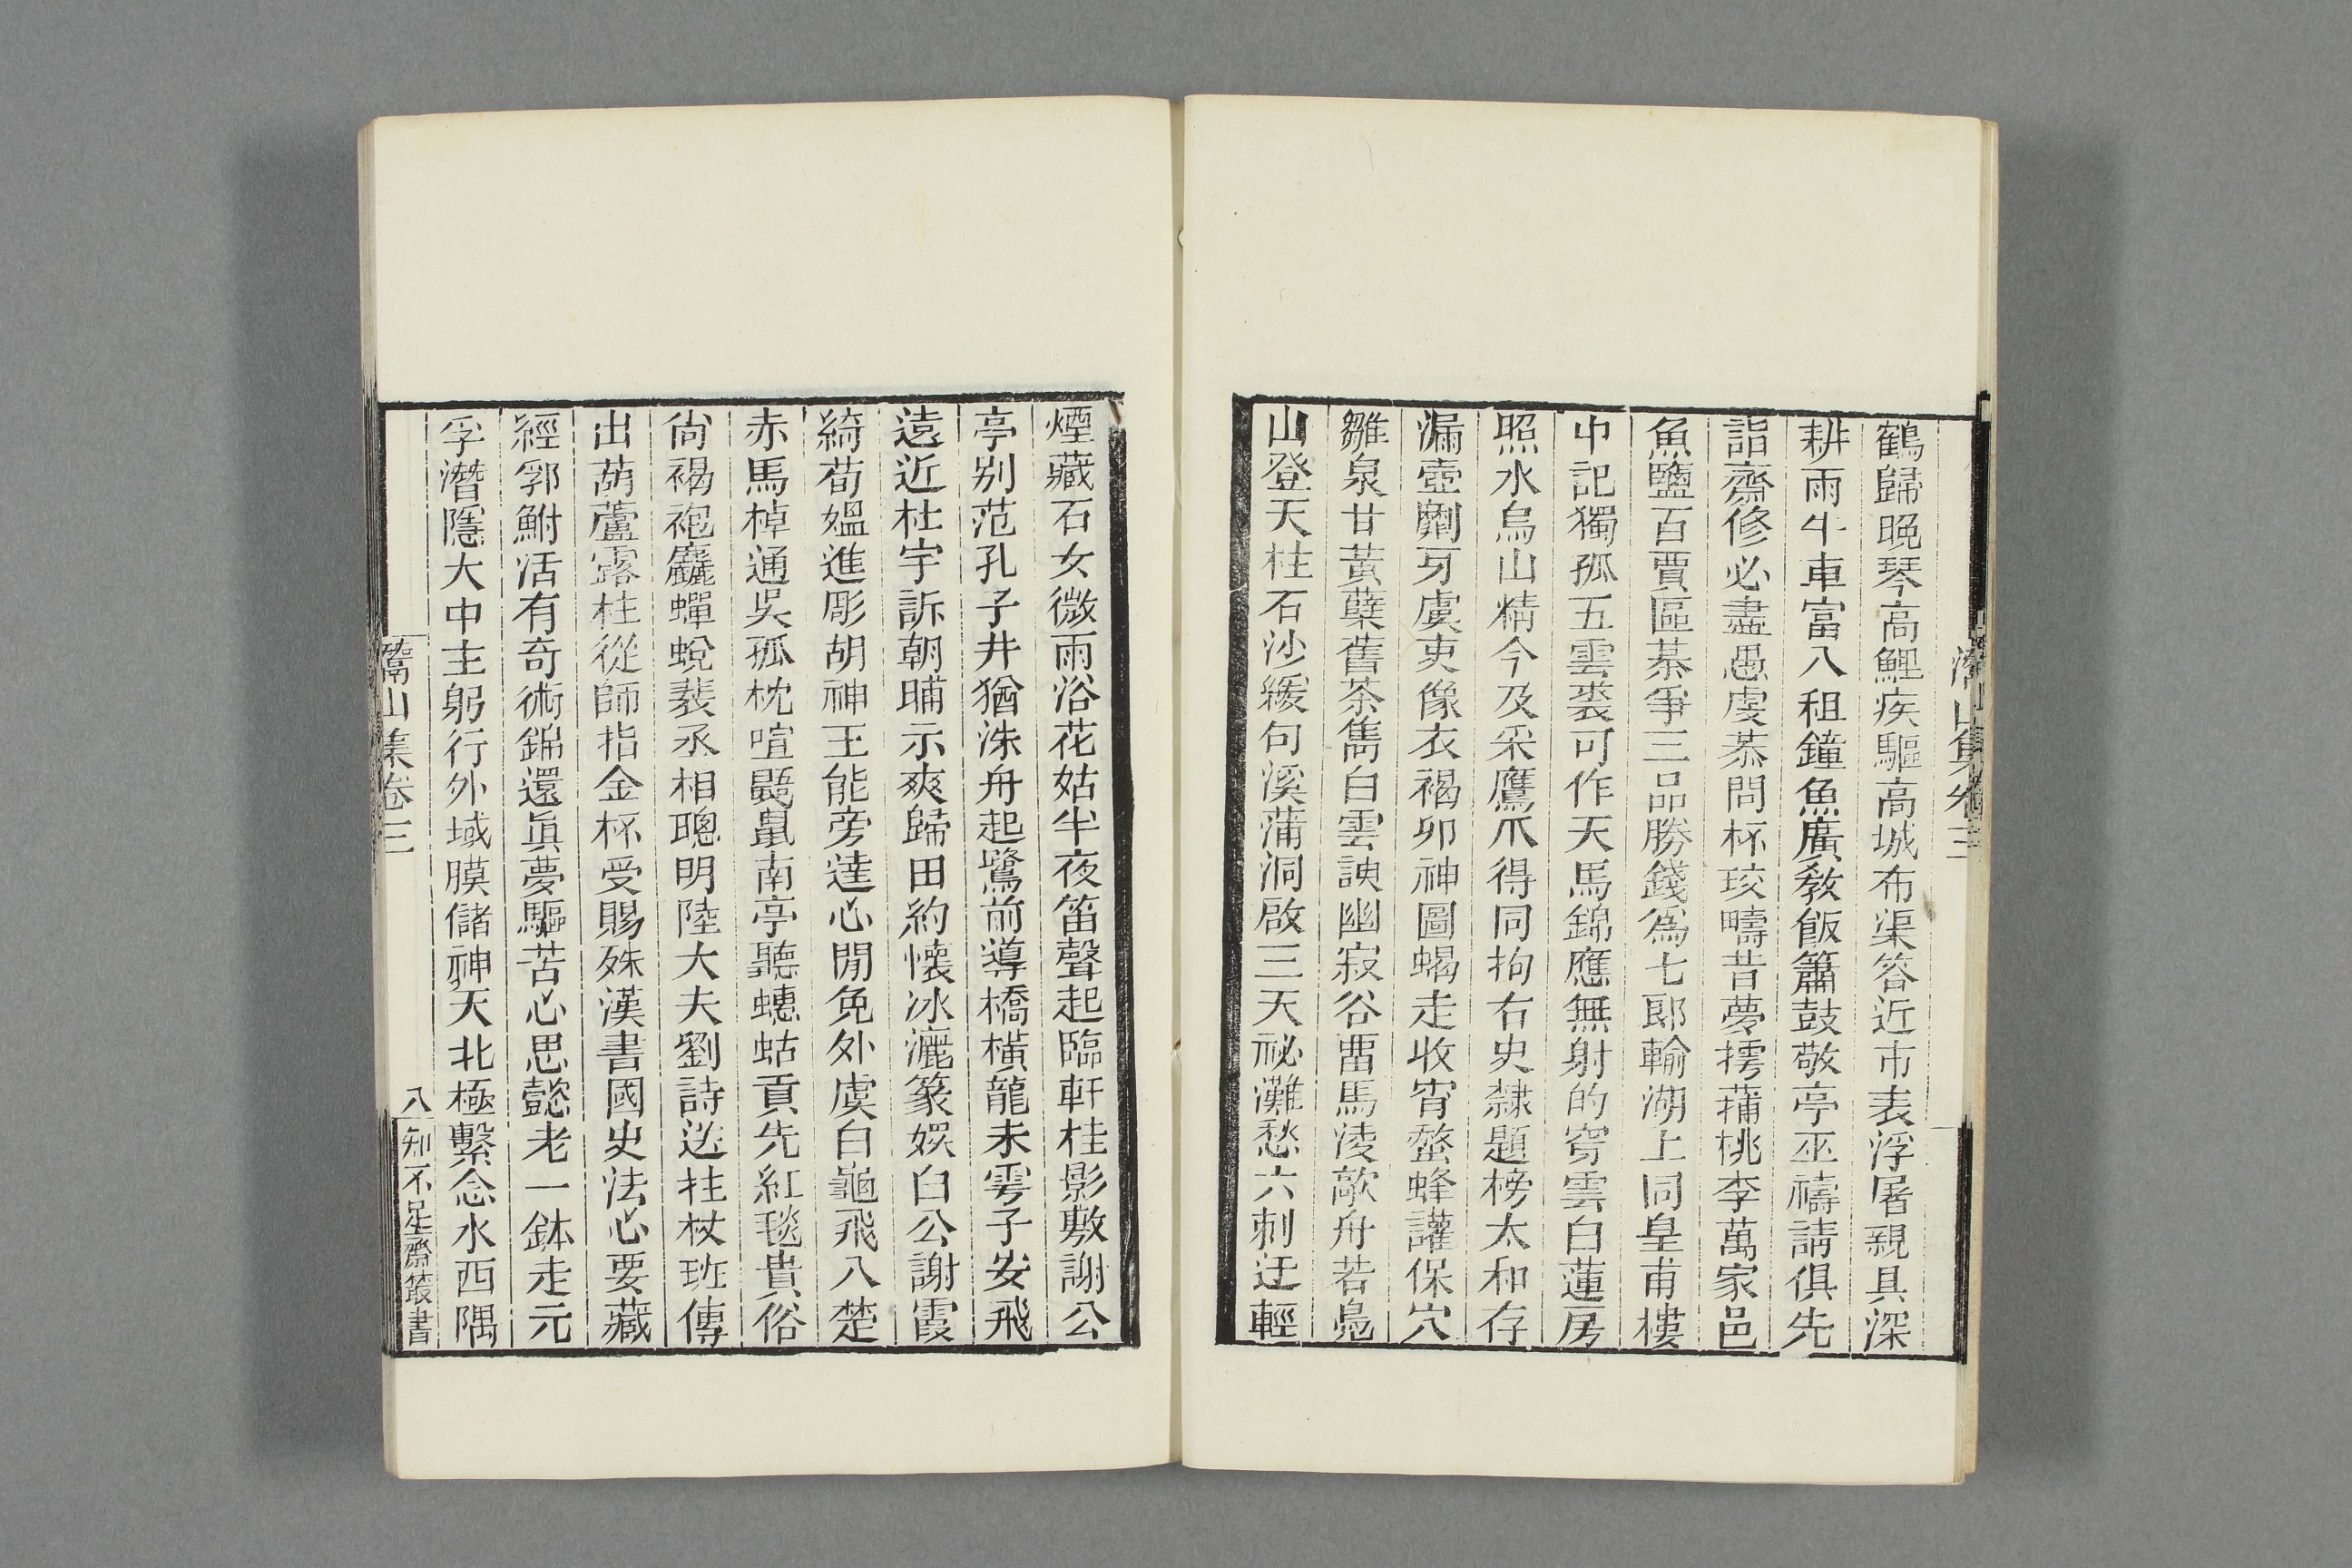 鶴歸晚琴高鯉疾驅高城布渠答近市表浮屠親具深
耕雨牛車富八租鐘魚廣教飯簫鼓敬亭巫禱請俱先
詣齋修必盡愚虔恭問杯珓疇昔夢摴蒱桃李萬家邑
魚鹽百賈區棊爭三品勝錢爲七郞輸湖上同皇甫樓
中記獨孤五雲裘可作天馬錦應無射的穹雲白蓮房
照水烏山精今及采鷹爪得同拘右史隸題榜太和存
漏壺劘牙虞吏像衣褐卯神圖蝎走收宵螫蜂讙保穴
雛泉甘黃蘗舊茶雋白雲諛幽寂谷畱馬淩歊舟若鳧
山登天柱石沙緩句溪蒲洞啟三天祕灘愁六刺迂輕
煙藏石女微雨浴花姑半夜笛聲起臨軒桂影敷謝公
亭别范孔子井猶洙舟起鷺前導橋橫龍未雩子安飛
遠近杜宇訴朝晡示爽歸田約懷冰灑篆娛白公謝霞
綺荀媼進彫胡神王能旁達心閒免外虞白龜飛八楚
赤馬棹通吳孤枕喧鼯鼠南亭聽蟪蛄貢先紅毯貴俗
尙褐袍麤蟬蛻裴丞相聰明陸大夫劉詩送拄杖班傳
出葫蘆露柱從師指金杯受賜殊漢書國史法心要藏
經郛鮒活有奇術錦還眞夢驅苦心思懿老一鉢走元
孚潛隱大中主躬行外域膜儲神天北極繫念水西隅
灊山集卷三
八
知不足齋叢書